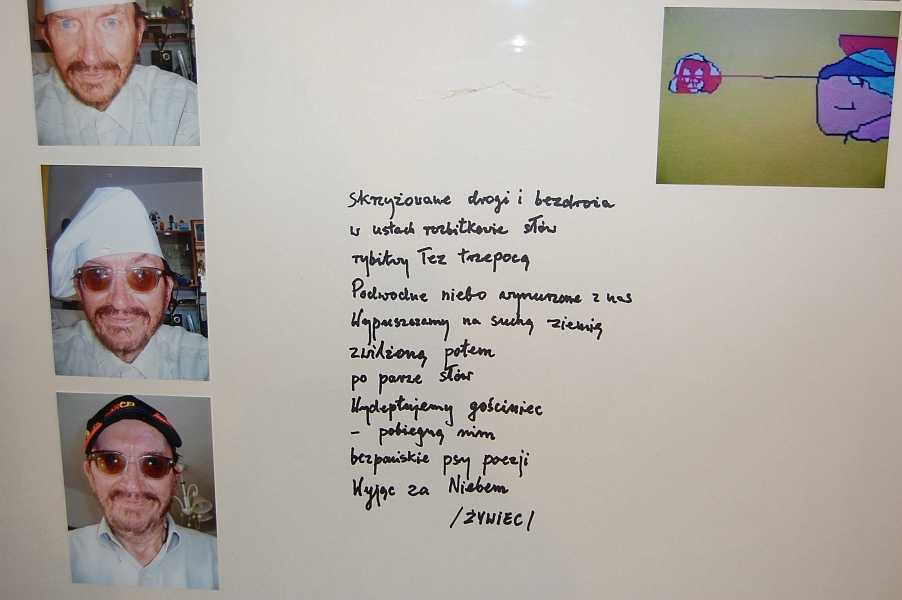 Skrzyżowane drogi i bezdroża
w ustach rozbitkowie słów
rybitwy łez trzepocą
Podwodne niebo wynurzone z nas
Wypuszczamy na suchą ziemię
zwilżoną potem
po parze słów
Wydeptujemy gościniec
– pobiegną nim
bezpańskie psy poezji
Wyjąc za Niebem
/ŻYWIEC/